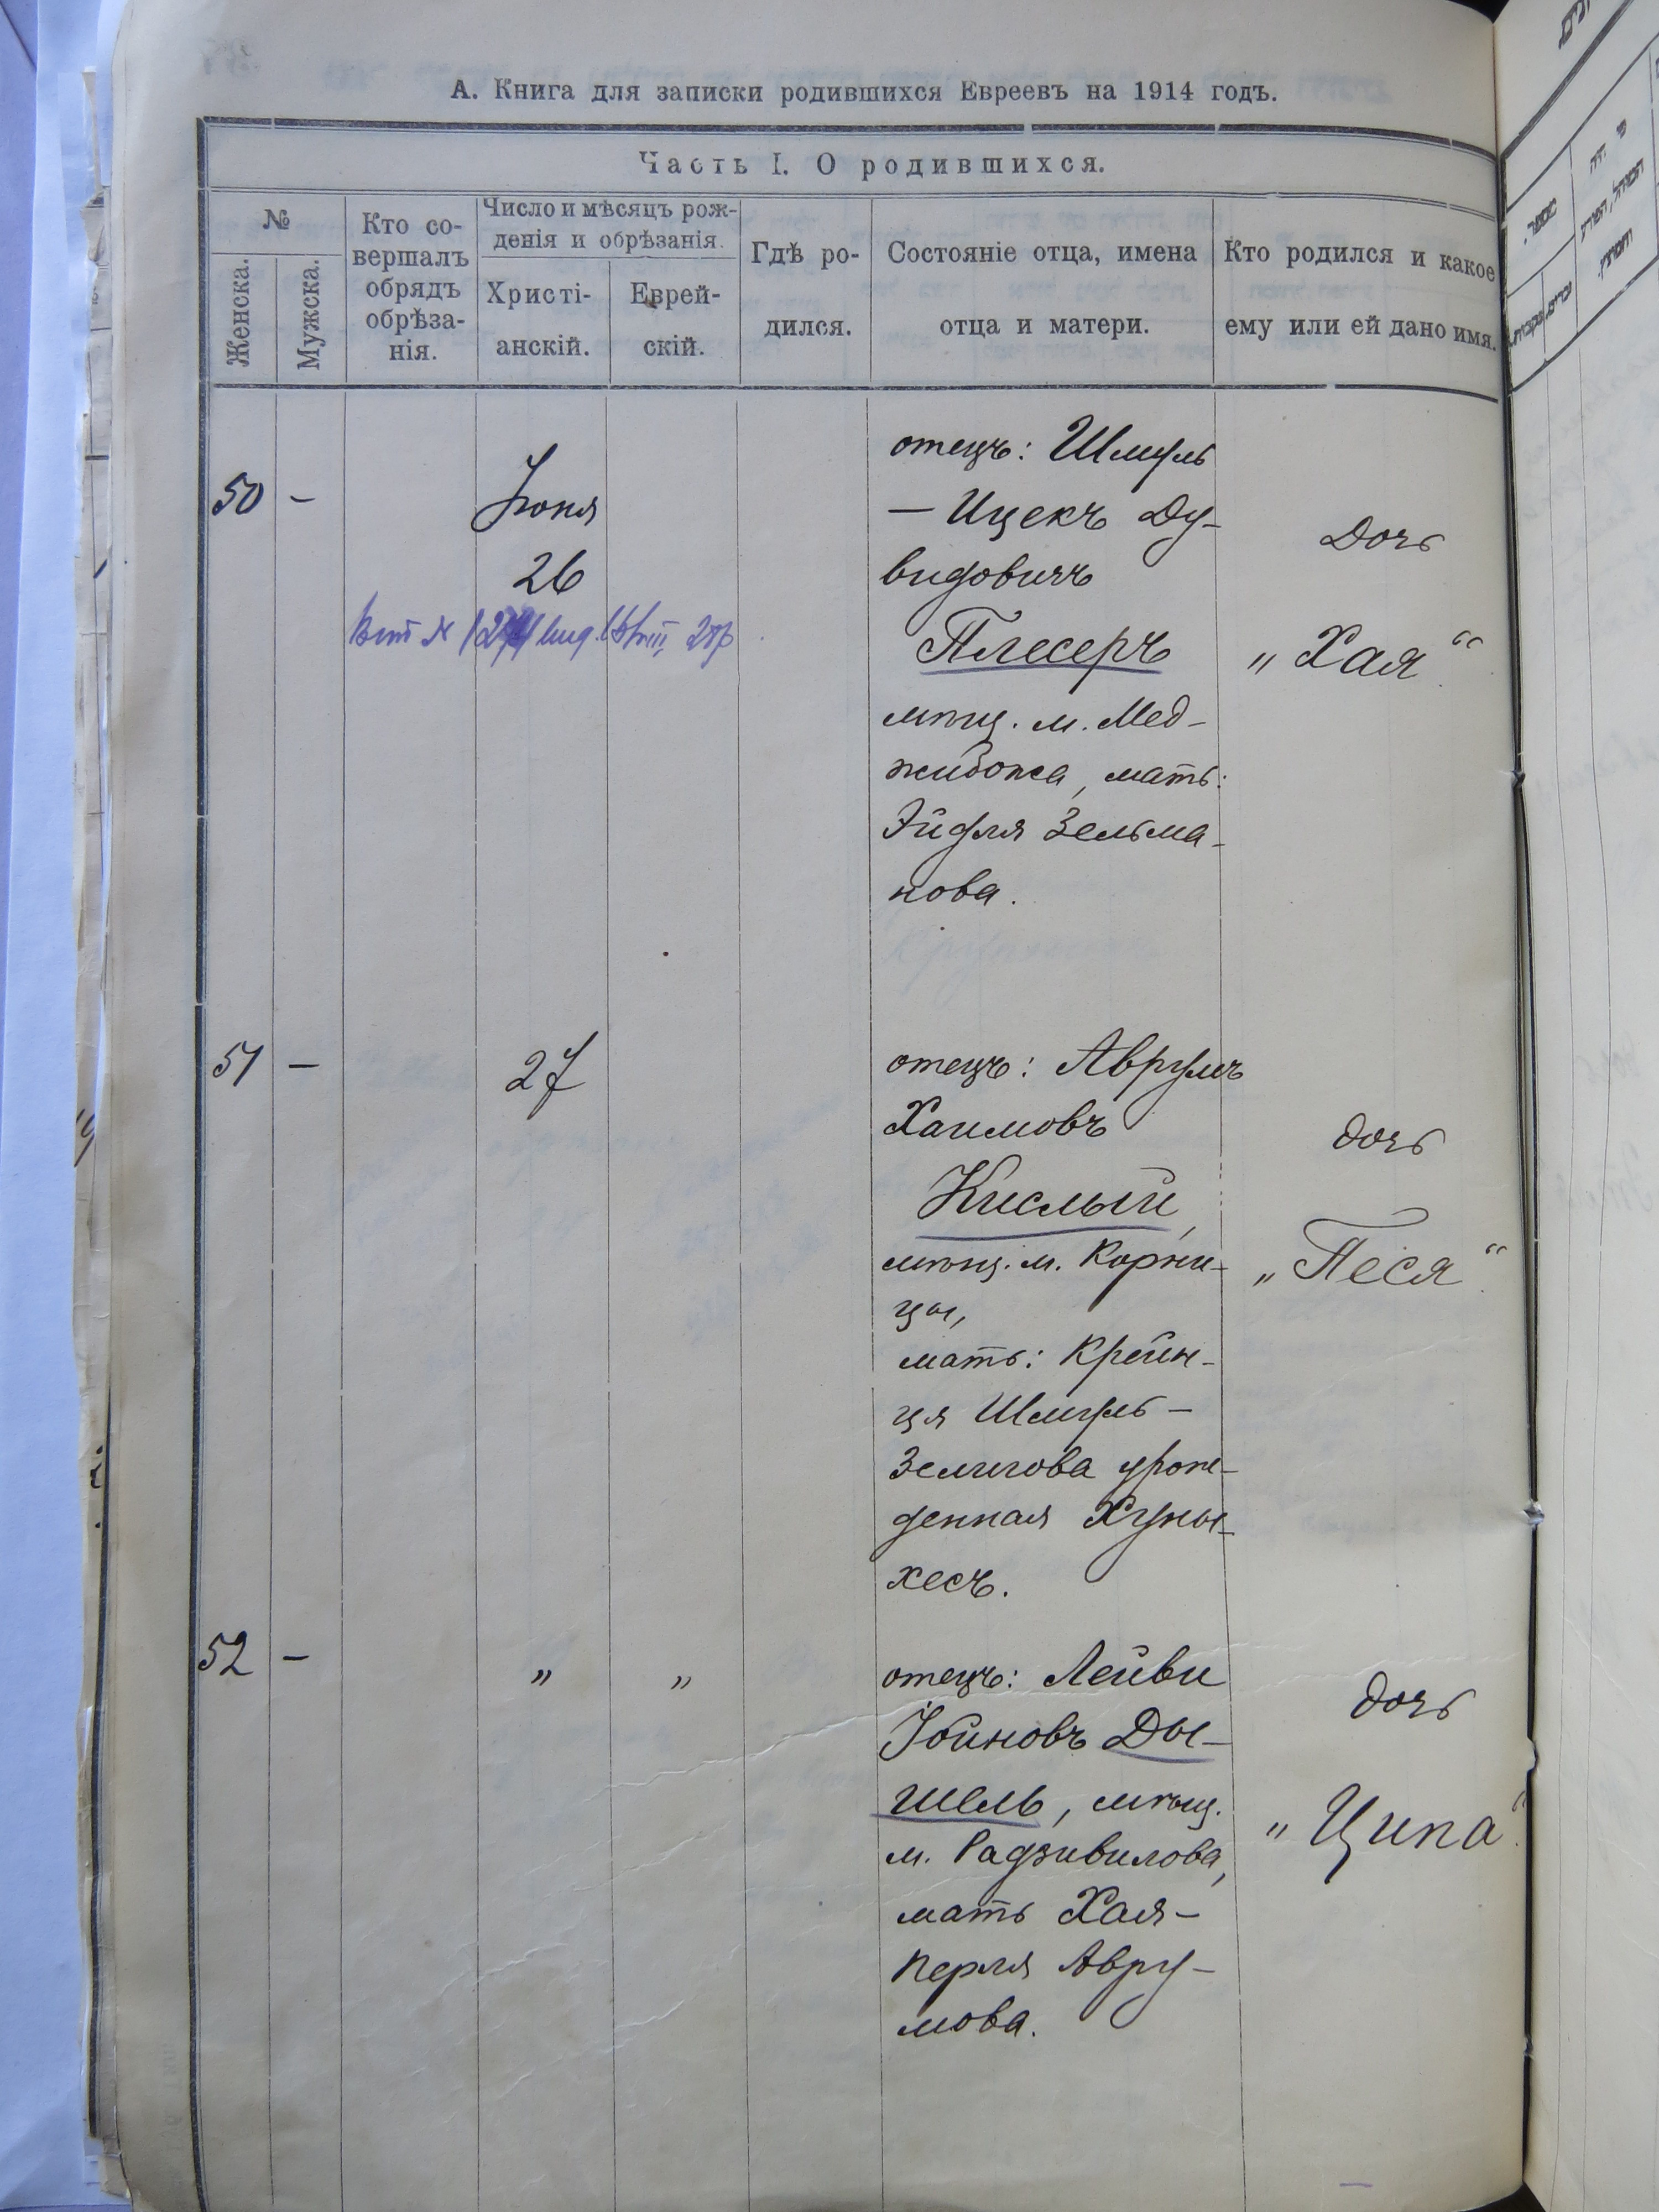 А. Книга для записки родившихся Евреевъ на 1914 годъ.
Часть I. О родившихся.
№
Женска.
Мужска.
Кто со-
вершалъ
обрядъ
обрѣза-
нія.
Число и мѣсяцъ рож-
денія и обрѣзанія.
Христі-
анскій.
Еврей-
скій.
Гдѣ ро-
дился.
Состояніе отца, имена
отца и матери.
Кто родился и какое
ему или ей дано имя.
50 –
Іюня
26
отецъ: Шмуль
– Ицекъ Ду-
видовичъ
Плесеръ
мѣщ. м. Мед-
жибожа, мать:
Эйдля Зельма-
нова.
Дочь
„Хая“
51 –
27
отецъ: Аврумъ
Хаимовъ
Кислый,
мѣщ. м. Корни-
цы,
мать: Крейн-
ця Шмуль-
Зелигова урож-
денная Хуны-
хесъ.
дочь
„Песя“
52 –
„ „
отецъ: Лейви
Іойновъ Ды-
шель, мѣщ.
м. Радзивилова,
мать Хая-
Перля Авру-
мова.
дочь
„Ципа“